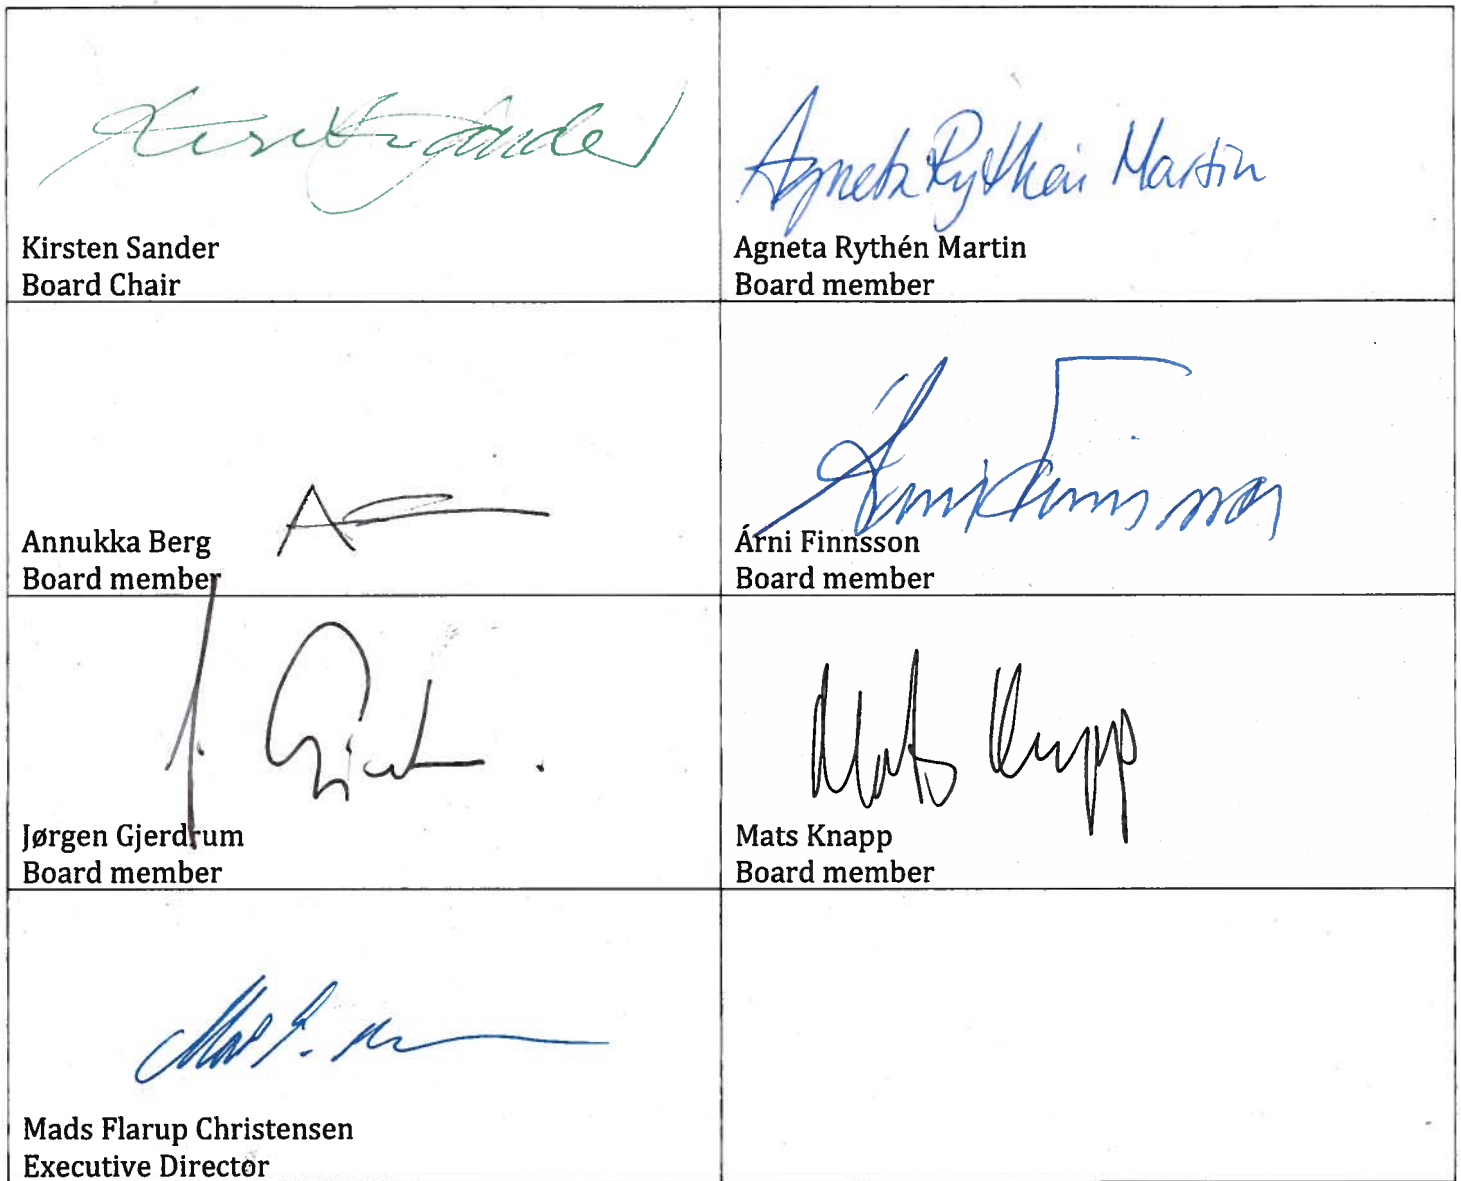 Kirsten Sander
Kirsten Sander
Board Chair
Agneta Rythén Martin
Agneta Rythén Martin
Board member
Annukka Berg
Board member
Árni Finnsson
Árni Finnsson
Board member
J. Gj
Jørgen Gjerdrum
Board member
Mats Knapp
Mats Knapp
Board member
Mads F.
Mads Flarup Christensen
Executive Director